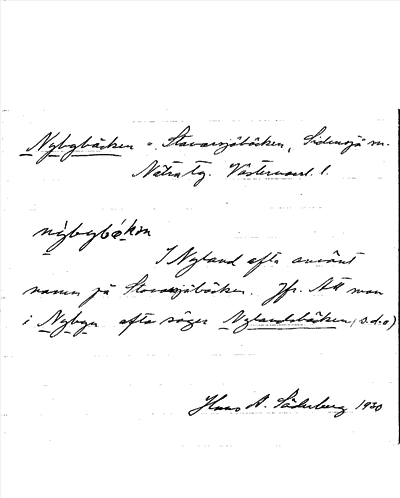 Nybybäcken = Stavarsjöbäcken, Sidensjö sn.
Nätra tg. Västernorrl. l.
nỳbybékɷn
I Nyland ofta använt
namn på Stavarsjöbäcken. Jfr. Att man
i Nybyn ofta säger Nylandsbäcken, s.d.o)
Hans A. Söderberg 1930